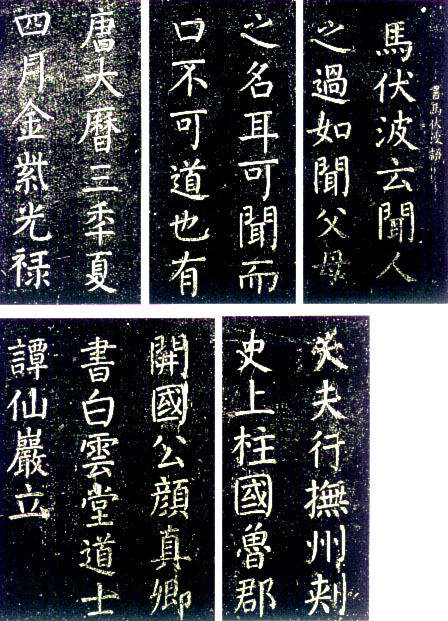 書馬伏波語
馬伏波云聞人
之過如聞父母
之名耳可聞而
口不可道也有
唐大暦三秊夏
四月金紫光禄
大夫行撫州刾
史上柱國魯郡
開國公顔真卿
書白雲堂道士
譚仙巖立